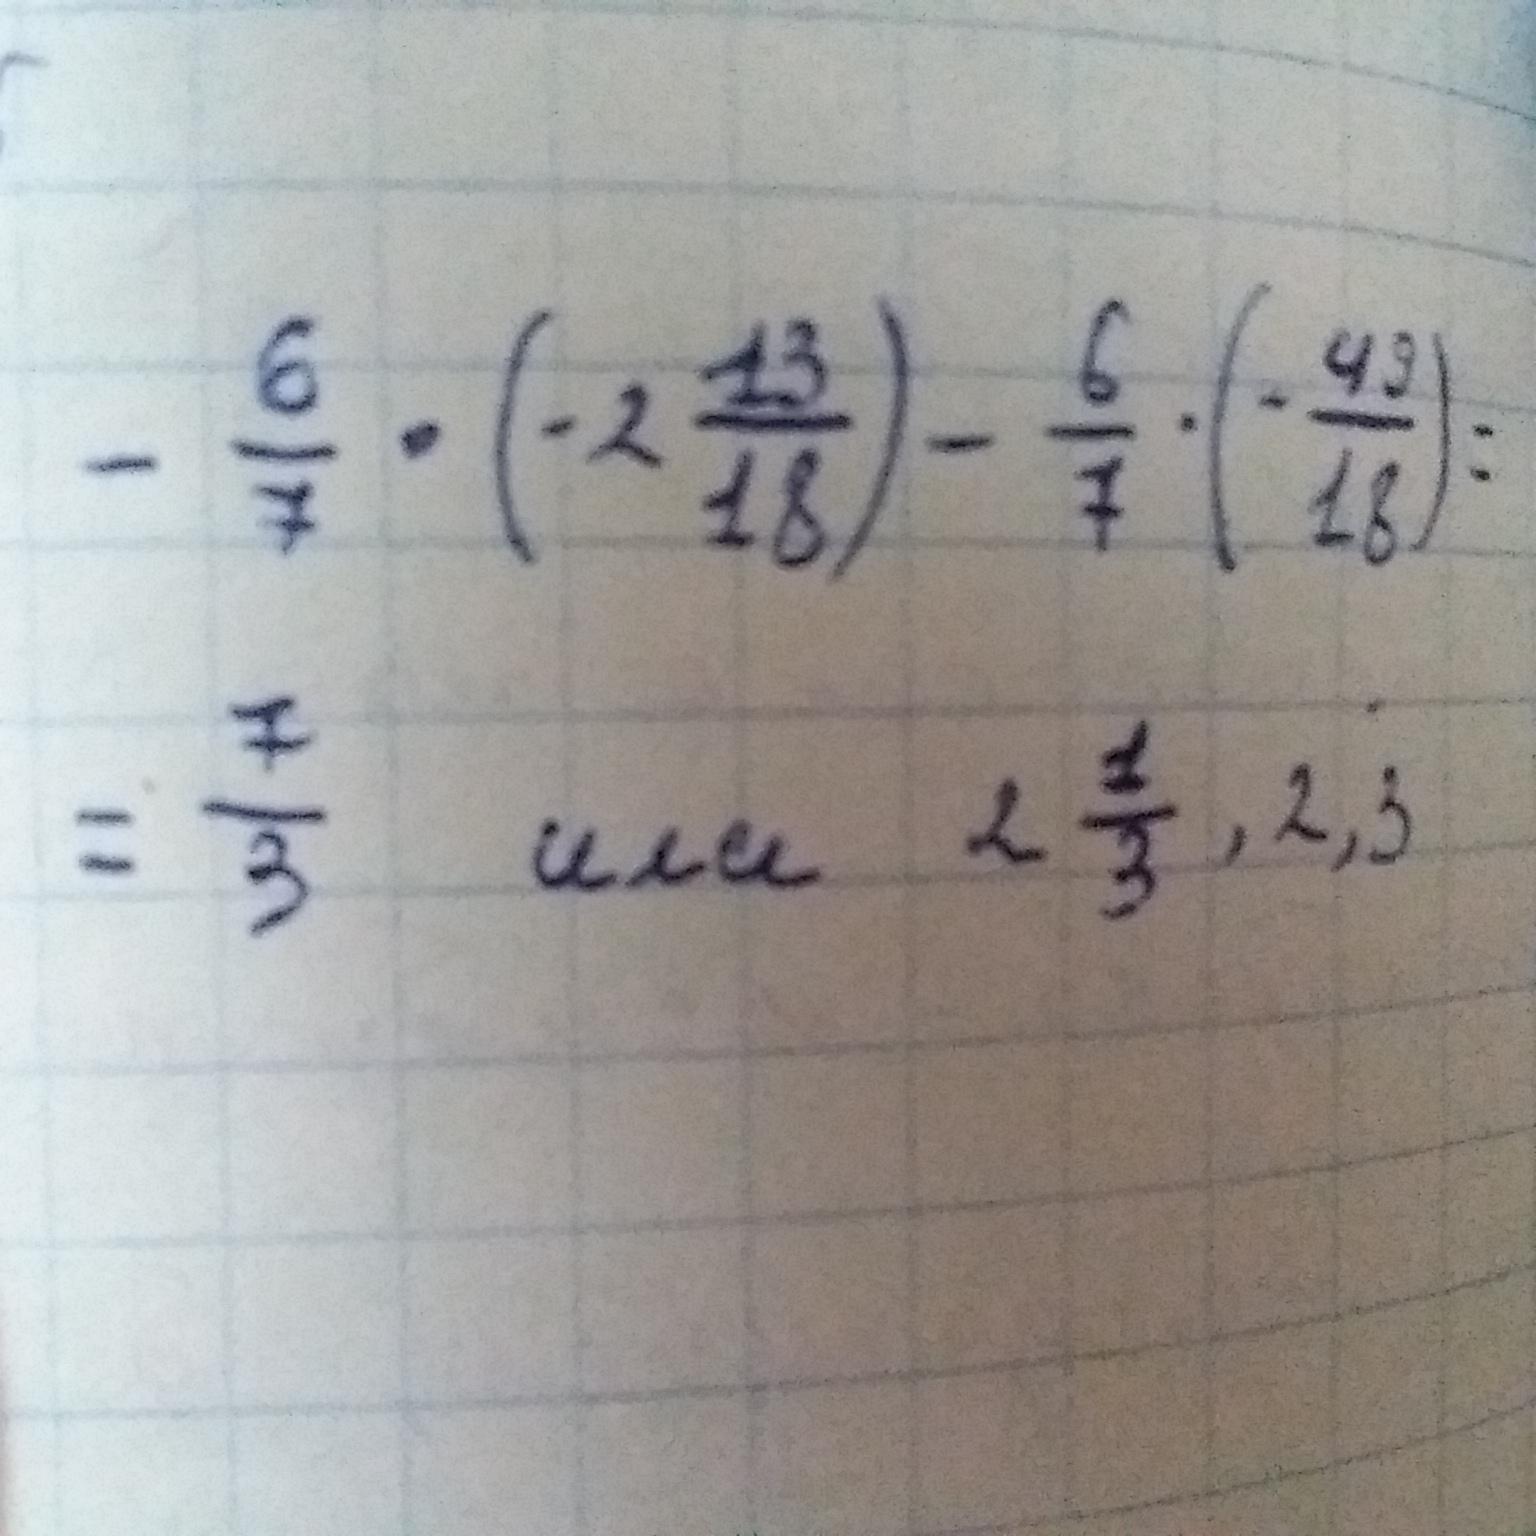 - 6/7 • (-2 13/18) - 6/7 · (- 49/18) =
= 7/3 или 2 1/3, 2,3